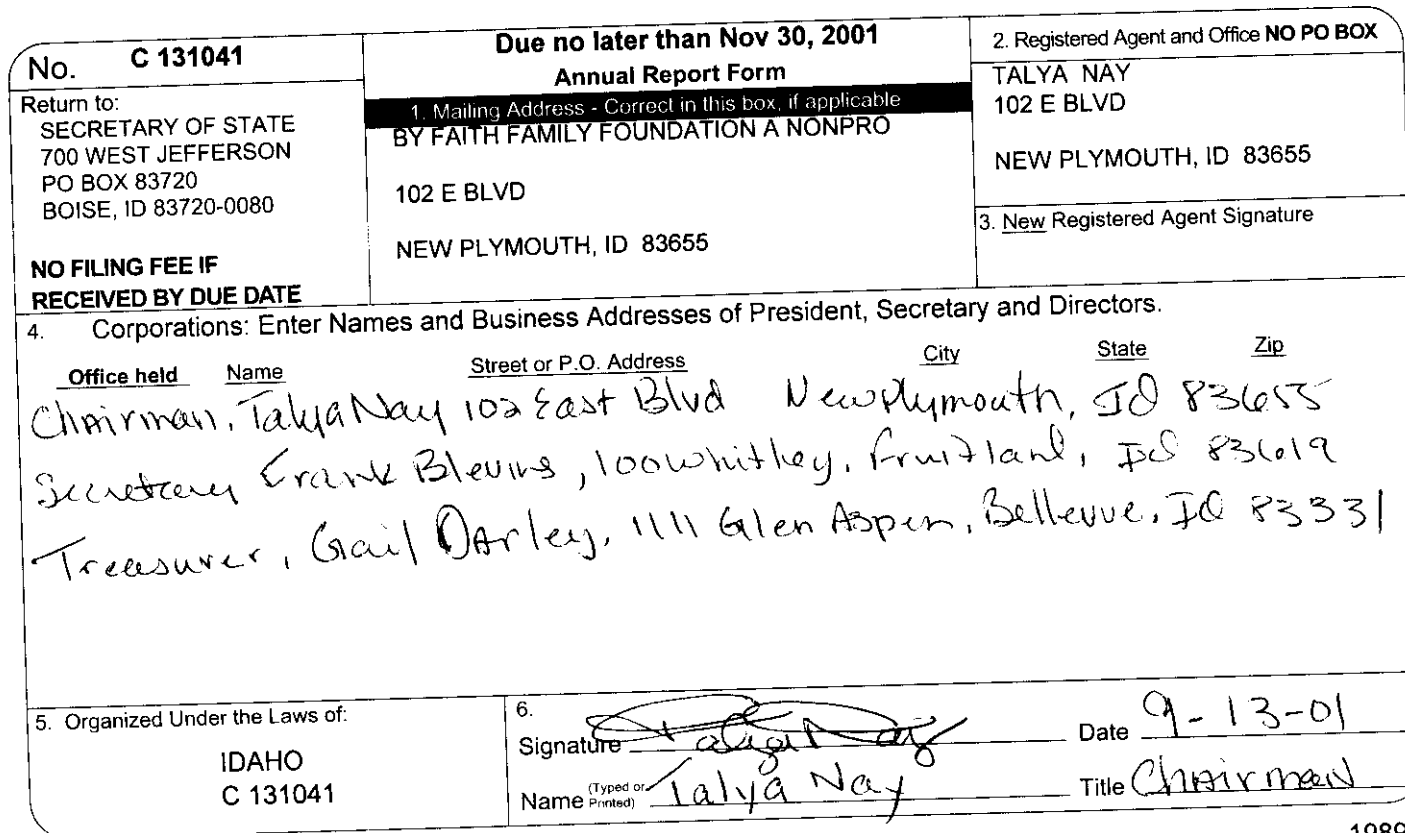 No. C 131041
Return to:
SECRETARY OF STATE
700 WEST JEFFERSON
PO BOX 83720
BOISE, ID 83720-0080
NO FILING FEE IF
RECEIVED BY DUE DATE
Due no later than Nov 30, 2001
Annual Report Form
1. Mailing Address - Correct in this box, if applicable
BY FAITH FAMILY FOUNDATION A NONPRO
102 E BLVD
NEW PLYMOUTH, ID 83655
2. Registered Agent and Office NO PO BOX
TALYA NAY
102 E BLVD
NEW PLYMOUTH, ID 83655
3. New Registered Agent Signature
4. Corporations: Enter Names and Business Addresses of President, Secretary and Directors.
Office held Name Street or P.O. Address City State Zip
Chairman, Talya Nay 102 East Blvd New Plymouth, ID 83655
Secretary Frank Blevins, 100 Whitley, Fruitland, Id 83619
Treasurer, Gail Darley, 1111 Glen Aspen, Bellevue, ID 83331
5. Organized Under the Laws of:
IDAHO
C 131041
6.
Signature Talya Nay Date 9-13-01
Name (Typed or Printed) Talya Nay Title Chairman
1989